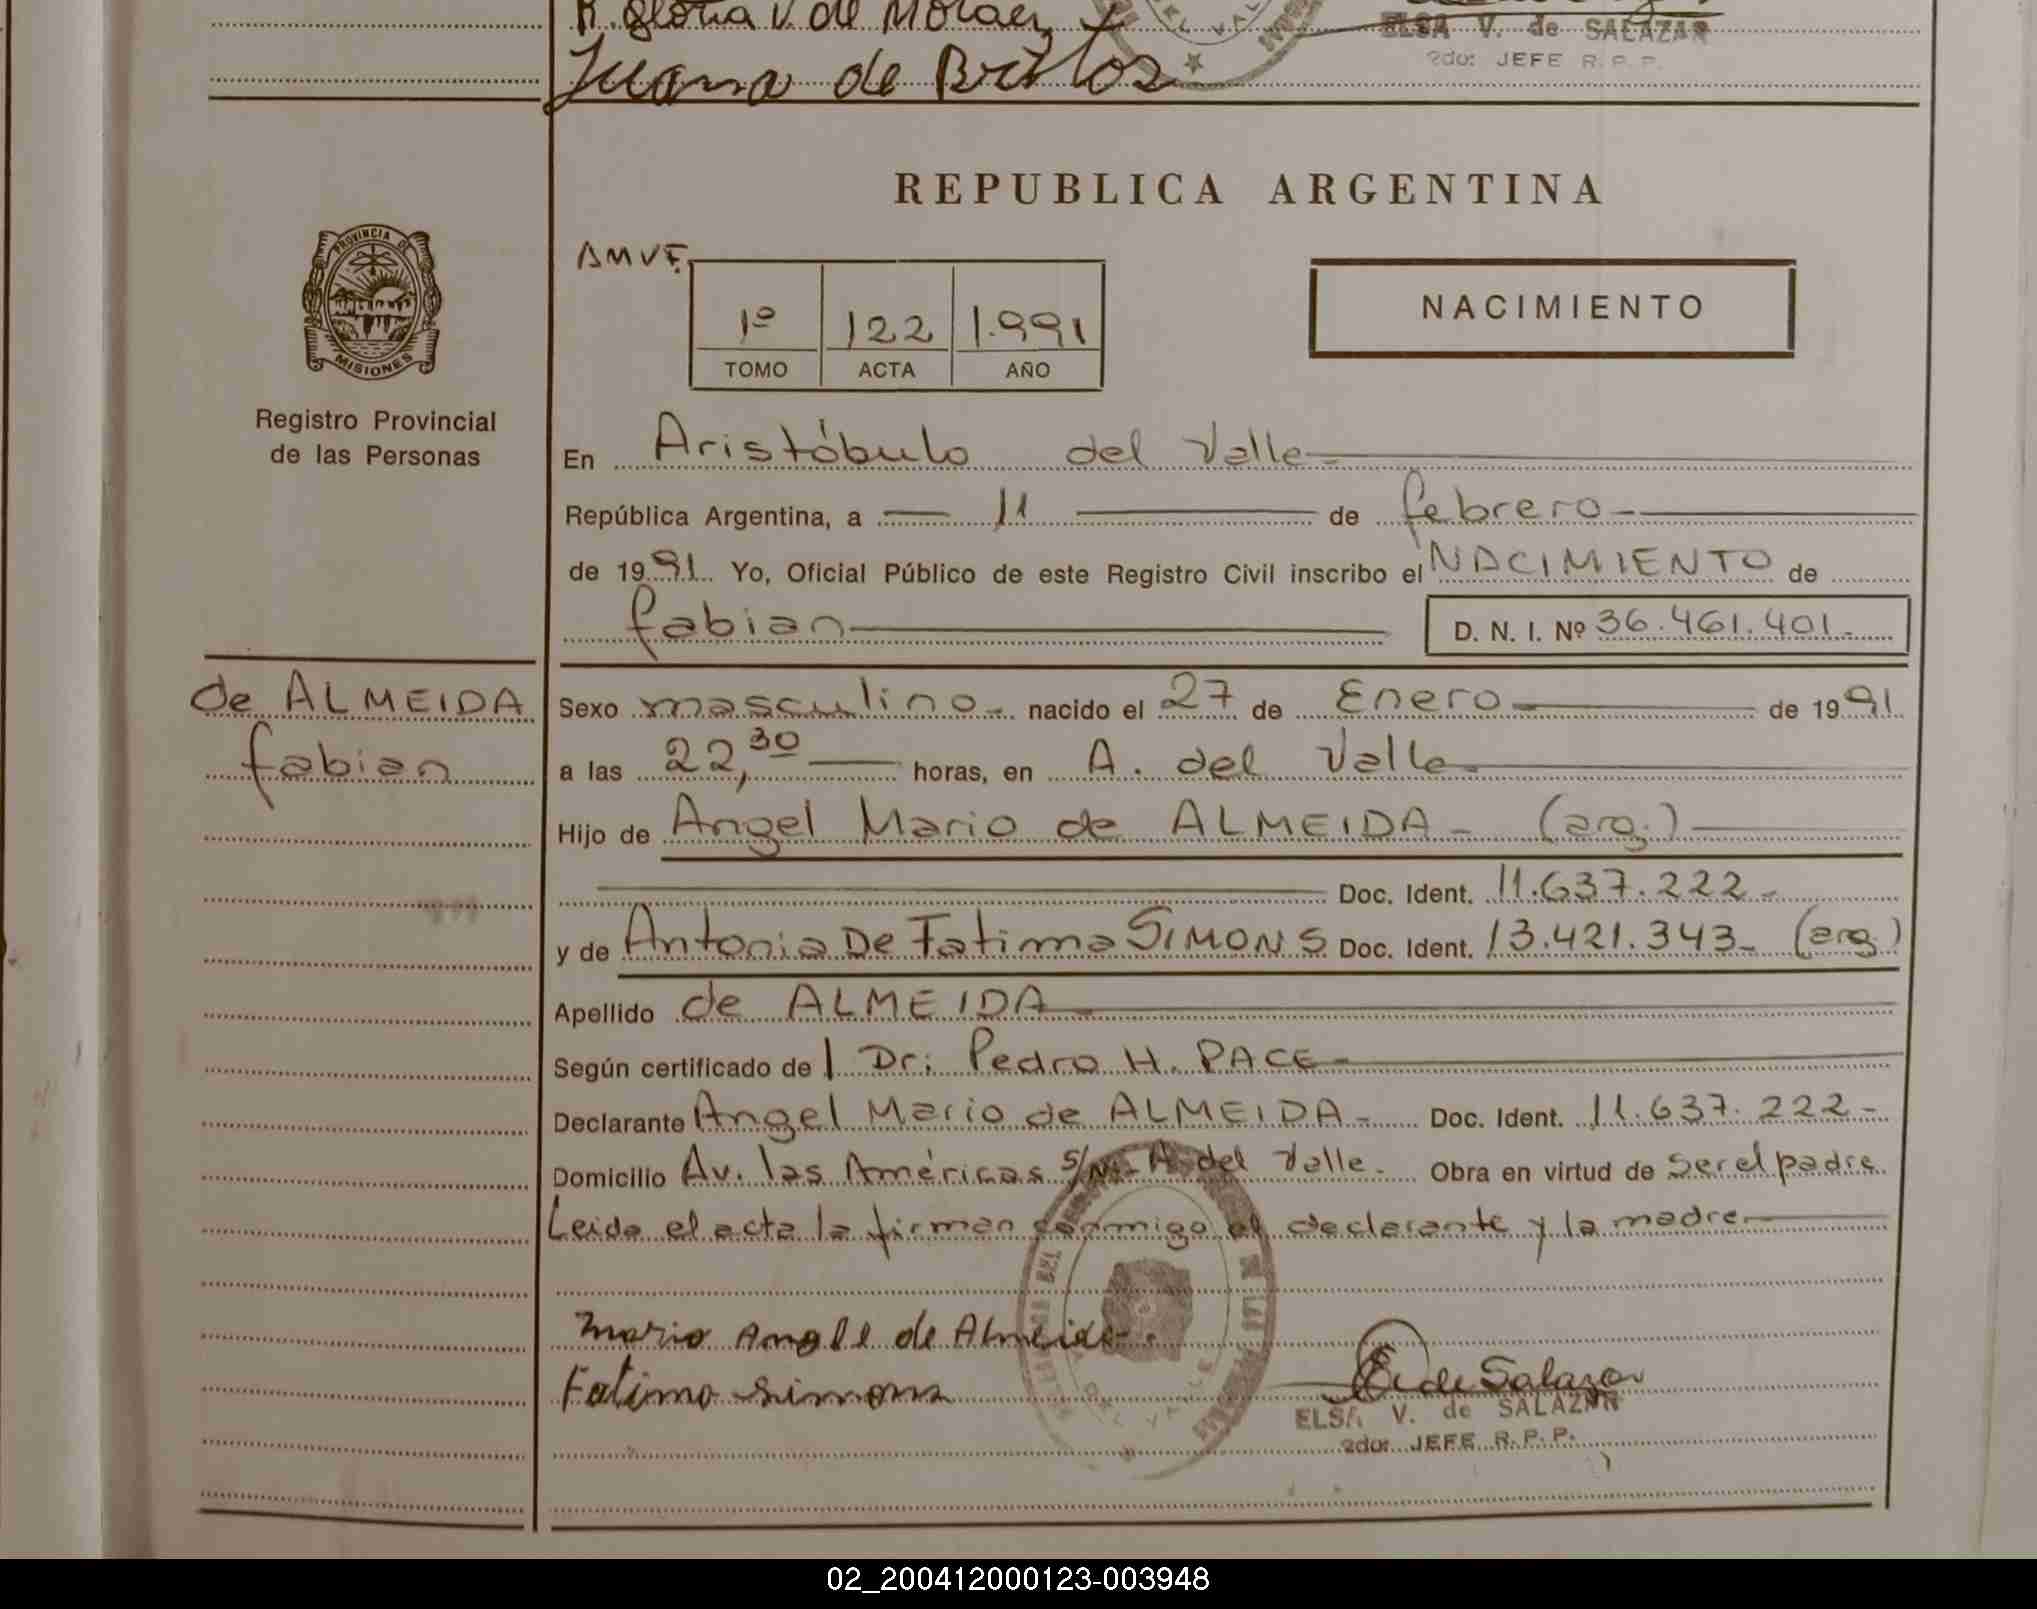 R. Gloria V. de Moraez
ELSA V. de SALAZAR
2do: JEFE R. P. P.
Juana de Britos
REPUBLICA ARGENTINA
PROVINCIA DE
MISIONES
AMVF.
1º 122 1.991
TOMO ACTA AÑO
NACIMIENTO
Registro Provincial
de las Personas
En Aristóbulo del Valle
República Argentina, a 11 de febrero
de 1991 Yo, Oficial Público de este Registro Civil inscribo el NACIMIENTO de
fabian D. N. I. Nº 36.461.401.
de ALMEIDA
fabian
Sexo masculino nacido el 27 de Enero de 1991
a las 22,30 horas, en A. del Valle
Hijo de Angel Mario de ALMEIDA (arg.)
Doc. Ident. 11.637.222
y de Antonia De Fatima SIMONS Doc. Ident. 13.421.343 (arg)
Apellido de ALMEIDA
Según certificado de l Dr: Pedro H. PACE
Declarante Angel Mario de ALMEIDA Doc. Ident. 11.637.222
Domicilio Av. las Américas s/n. A. del Valle. Obra en virtud de ser el padre
Leida el acta la firman conmigo el declarante y la madre
Mario Angle de Almeida
Fatima Simons
E. de Salazar
ELSA V. de SALAZAR
2do: JEFE R. P. P.
02_200412000123-003948